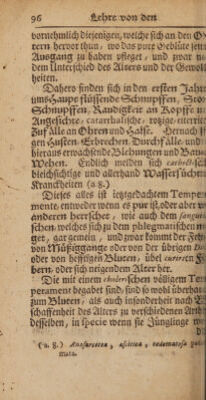 96 Lehre von den
vornehmlich diejenigen, welche sich an den O
tern hervor thun, wo das pure Geblüte jene
Ausgang zu haben pfleget, und zwar na
dem Unterschied des Alters und der Gewol
heiten.
Dahero finden sich in den ersten Jahr
ums Haupt flüssende Schnupffen, Sto
Schnupffen, Räudigkeit an Kopffe un
Angesichte, catarrhalische, rozige
Fäl alle an Ohren und Halse. Hernach
gen Husten Erbrechen Durchfälle und
hieraus erwachsende Blehungen und Bauc
Wehen. Endlich melden sich
bleichsichtige und allerhand Wassersüchti
Kranckheiten (a 8.)
Dieses alles ist ietztgedachtem Tempe
mente, entweder wenn es pur ist, oder aber w
anderen herrschet, wie auch dem sangui
schen, welches sich zu dem phlegmatischen
get, gar gemein, und zwar kommt der Fehl
von Müßiggange oder von der übrigen
oder von hefftigen Bluten, über
bern, oder sich neigendem Alter her.
Die mit einem cholerischen völligem Te
perament begabet sind, sind so wohl überhau
zum Bluten, als auch insonderheit nach
schaffenheit des Alters zu verschiedenen Arth
desselben, in specie wenn sie Jünglinge
(a. 8.) Anasarcatea, ascitica, oedematosa
mata.